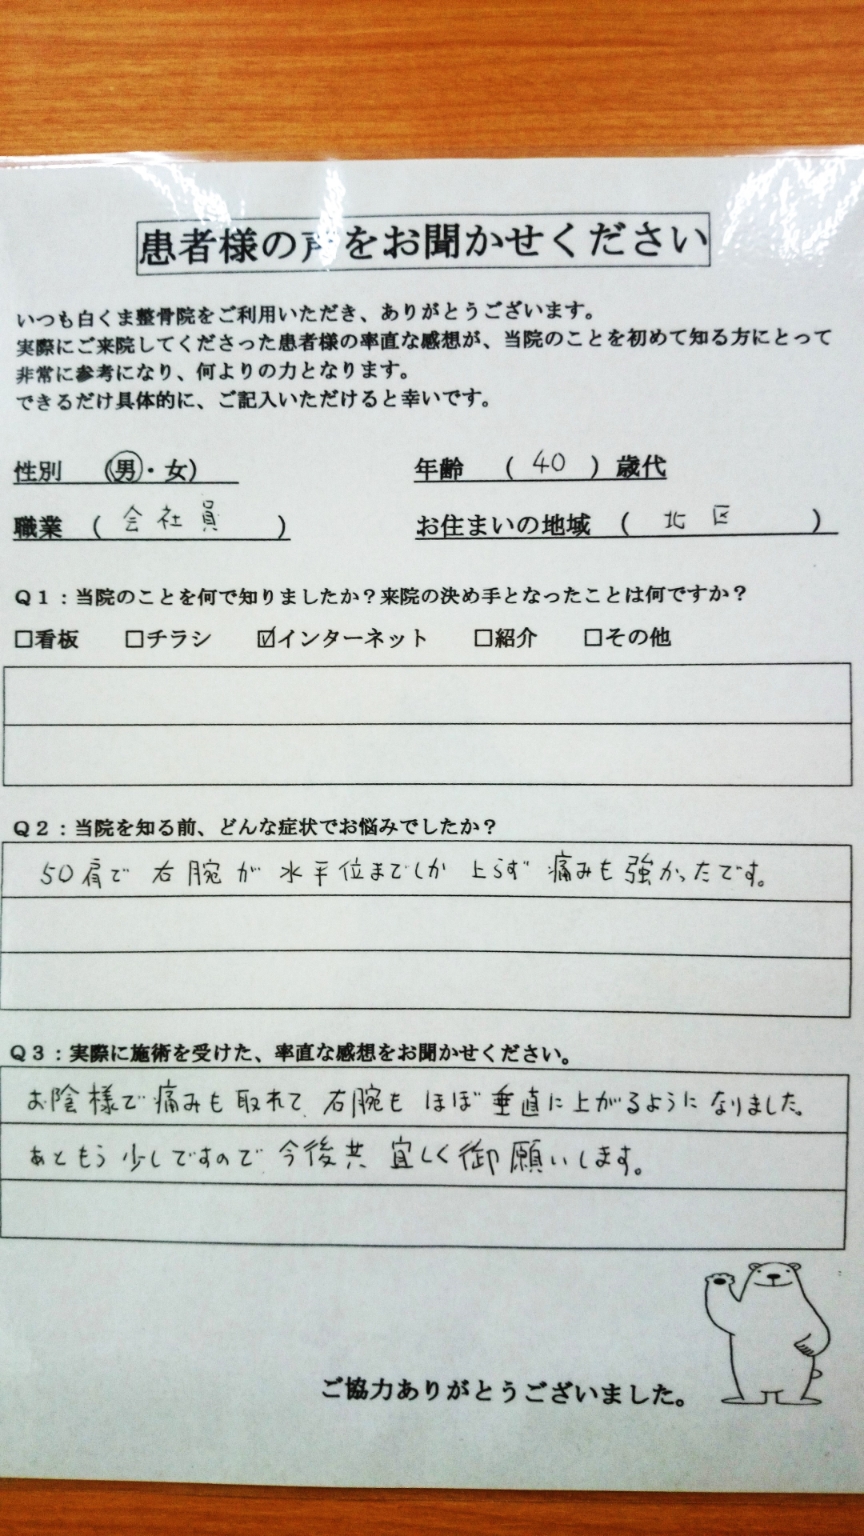 患者様の声をお聞かせください
いつも白くま整骨院をご利用いただき、ありがとうございます。
実際にご来院してくださった患者様の率直な感想が、当院のことを初めて知る方にとって
非常に参考になり、何よりの力となります。
できるだけ具体的に、ご記入いただけると幸いです。
性別 (男・女) 年齢 ( 40 ) 歳代
職業 ( 会社員 ) お住まいの地域 ( 北区 )
Q1：当院のことを何で知りましたか？来院の決め手となったことは何ですか？
□看板 □チラシ ☑インターネット □紹介 □その他
Q2：当院を知る前、どんな症状でお悩みでしたか？
50肩で 右腕が 水平位までしか 上らず 痛みも強かったです。
Q3：実際に施術を受けた、率直な感想をお聞かせください。
お陰様で痛みも取れて、右腕も ほぼ垂直に上がるようになりました。
あともう少しですので 今後共 宜しく御願いします。
ご協力ありがとうございました。